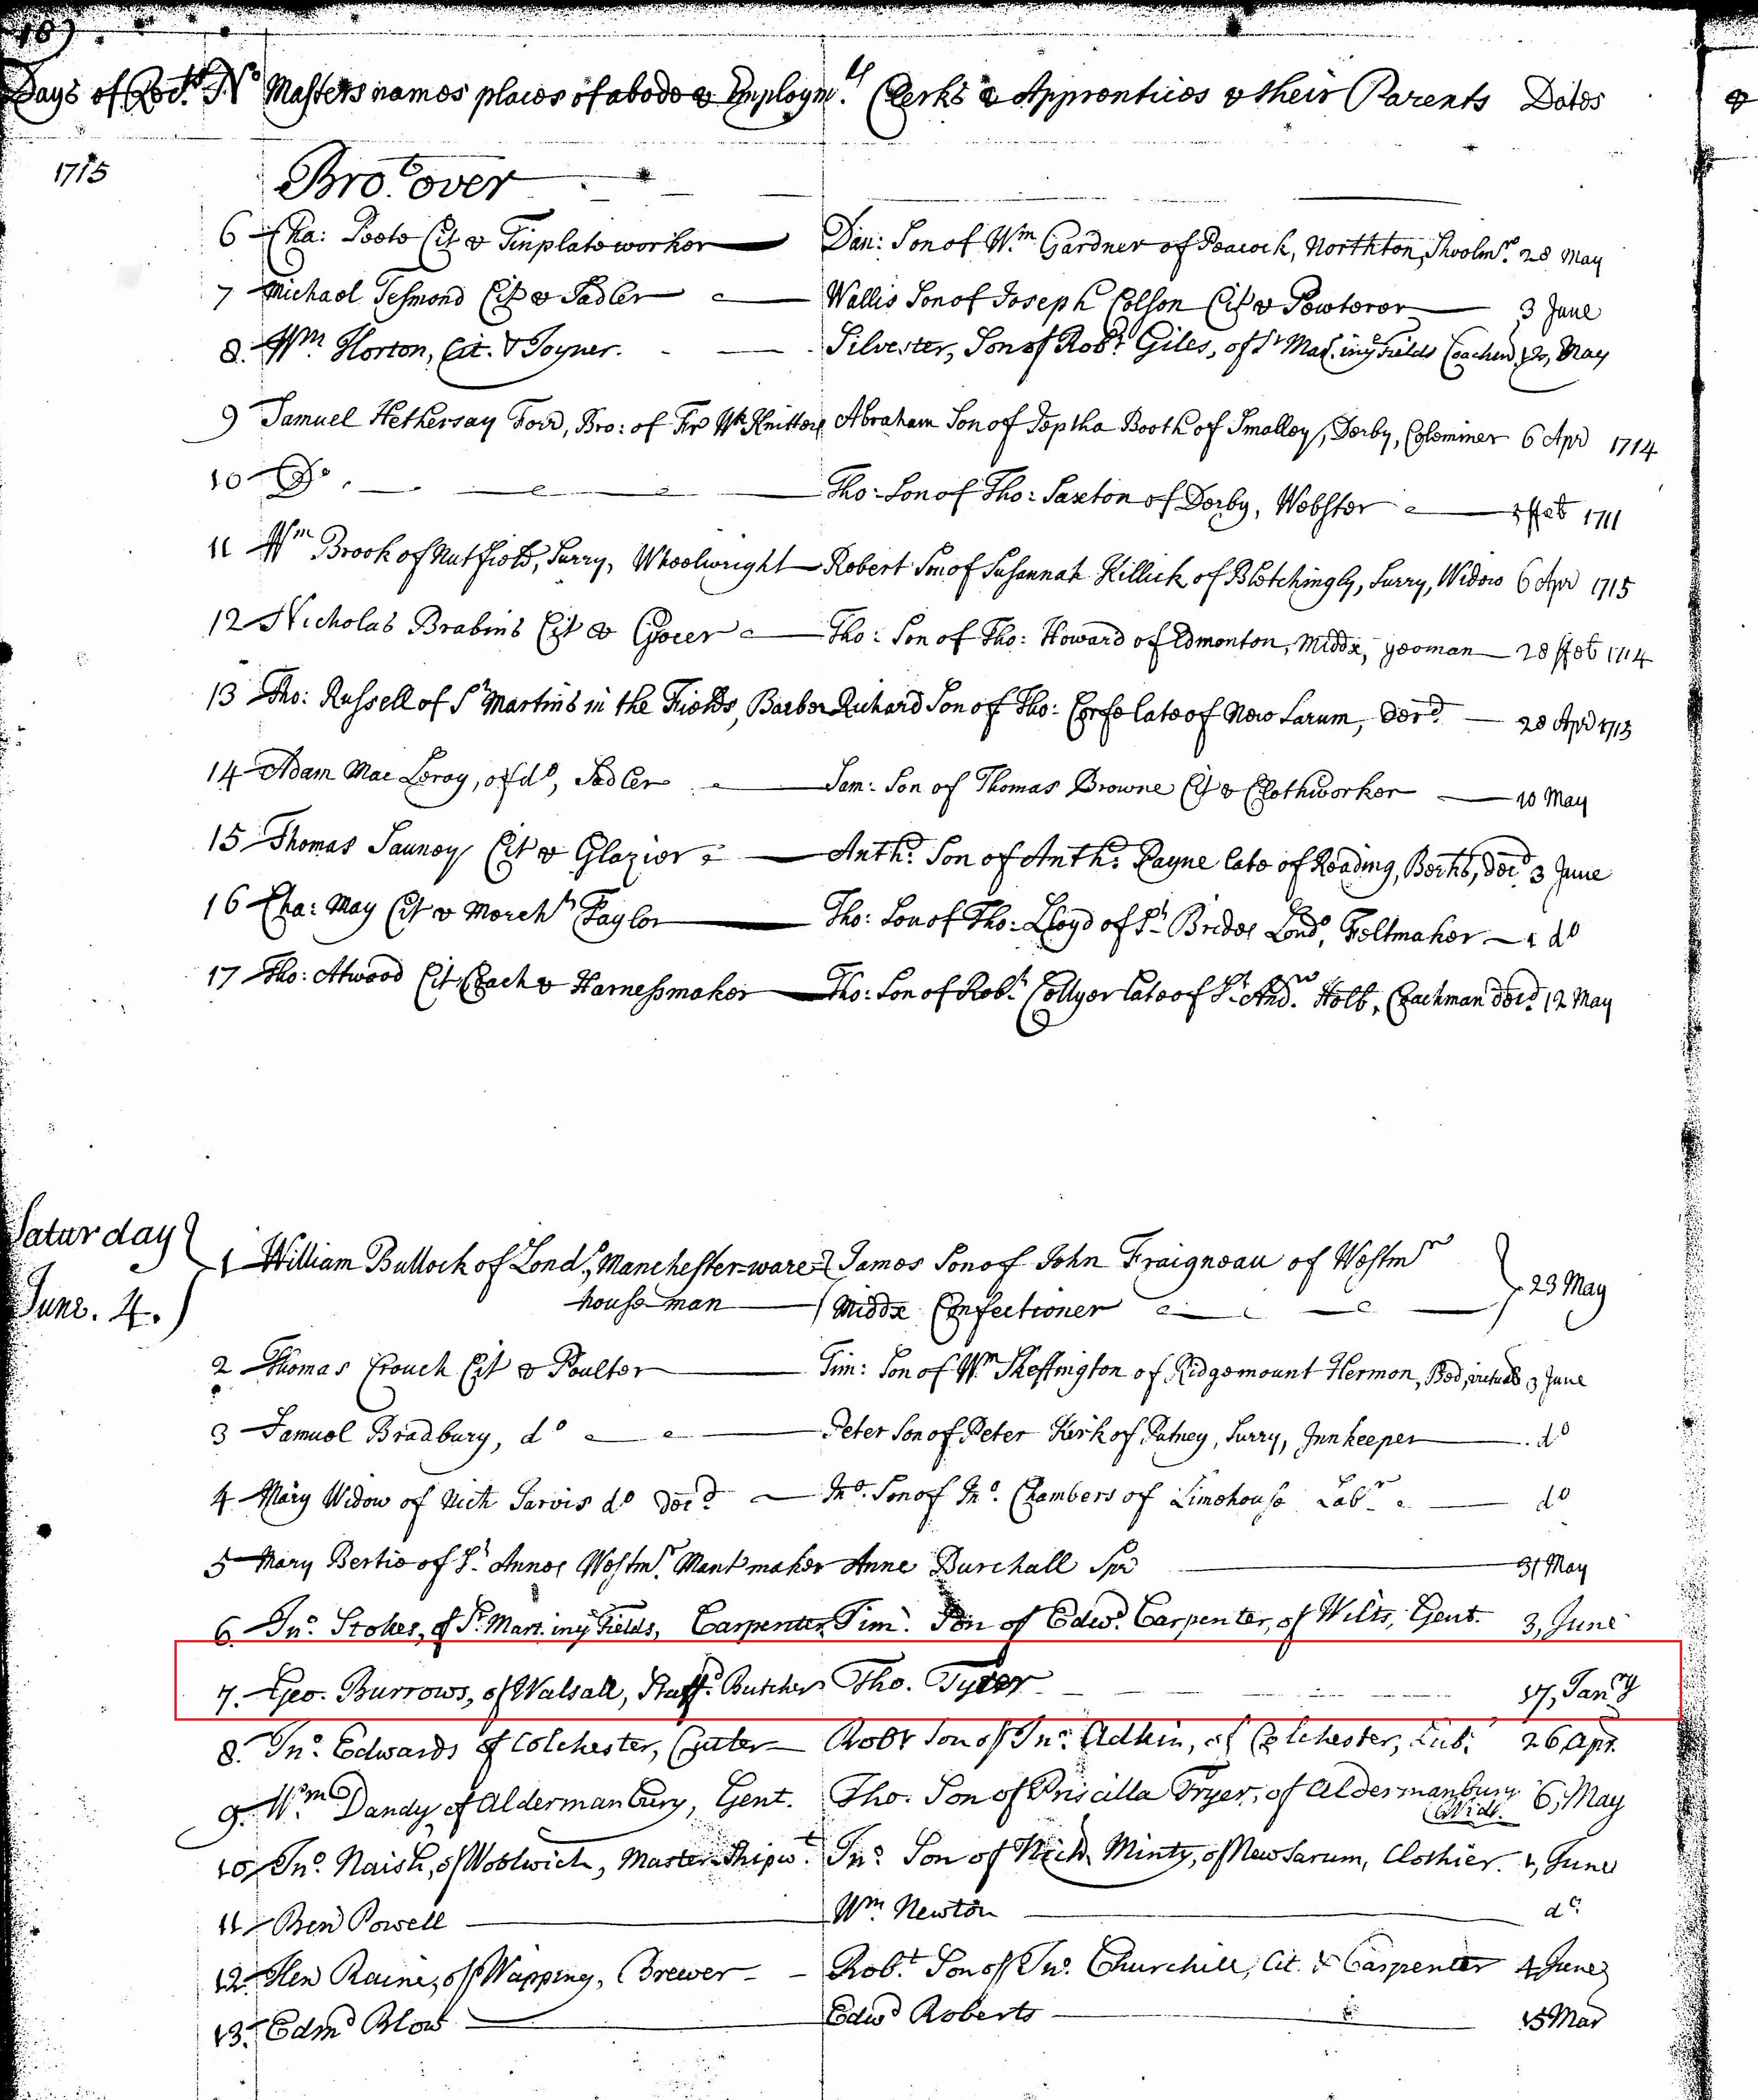 18)
Days of Rect. No Masters names places of abode & Employmts Clerks & Apprentices & their Parents Dates
1715
Brot. over
6 Cha: Poole Cit & Tinplateworker Dan: Son of Wm Gardner of Peacock, Northton, 28 May
7 Michael Tesmond Cit & Sadler Wallis Son of Joseph Colson Cit & Pewterer 3 June
8. Wm. Horton, Cit. & Joyner. Silvester, Son of Robt. Giles, of St Mart. in ye Fields May
9 Samuel Hethersay Ford, Bro: of Fr Wk Knitters Abraham Son of Jeptha Booth of Smalley, Derby, Coleminer 6 Apr 1714
10 Do. Tho: Son of Tho: Saxton of Derby, Webster Feb 1711
11 Wm Brook of Nutfield, Surry, Wheelwright Robert Son of Susannah Killick of Bletchingly, Surry, Widow 6 Apr 1715
12 Nicholas Brabins Cit & Grocer Tho: Son of Tho: Howard of Edmonton, Middx, yeoman 28 ffeb 1714
13 Tho: Russell of St Martins in the Fields, Barber Richard Son of Tho: Corfe late of New Sarum, decd 28 Apr 1715
14 Adam Mac Leroy, of do, Sadler Sam: Son of Thomas Browne Cit & Clothworker 10 May
15 Thomas Saunoy Cit & Glazier Anth: Son of Anth: Payne late of Reading, Berks, decd 3 June
16 Cha: May Cit & Mercht Taylor Tho: Son of Tho: Lloyd of St Brides Lond, Feltmaker 1 do
17 Tho: Atwood Cit Coach & Harnessmaker Tho: Son of Robt. Collyer late of St. Andw. Holb, Coachman decd. 12 May
Saturday
June. 4.
1 William Bullock of Lond, Manchester-ware- James Son of John Fraigneau of Westmr
house man Middx Confectioner 23 May
2 Thomas Crouch Cit & Poulter Tim: Son of Wm Skeffington of Ridgemount Hermon, Bed, 3 June
3 Samuel Bradbury, do Peter Son of Peter Kirk of Putney, Surry, Innkeeper do
4 Mary Widow of Nich Jarvis do decd Jno. Son of Jno. Chambers of Limehouse Labr do
5 Mary Bertie of St Annes Westmr. Mantmaker Anne Burchall Spr 31 May
6. Jno. Stokes, of St. Mart. in ye Fields, Carpenter Tim. Son of Edwd. Carpenter, of Wilts, Gent. 3, June
7. Geo. Burrows, of Walsall, Staffd. Butcher Tho. Tyrer 17, Jany
8. Jno. Edwards of Colchester, Cutler Robt Son of Jno. Adkin, of Colchester, Lab. 26 Apr.
9. Wm. Dandy of Aldermanbury, Gent. Tho. Son of Priscilla Fryer, of Aldermanbury 6, May
Wid.
10 Jno. Naish, of Woolwich, Master Shipwt. Jno. Son of Nich. Minty, of New Sarum, Clothier. 1, June
11 Ben Powell Wm. Newton do.
12. Hen Raine, of Wapping, Brewer Robt. Son of Jno. Churchill, Cit. & Carpenter 4 June
13. Edmd Blow Edwd Roberts 15 Mar